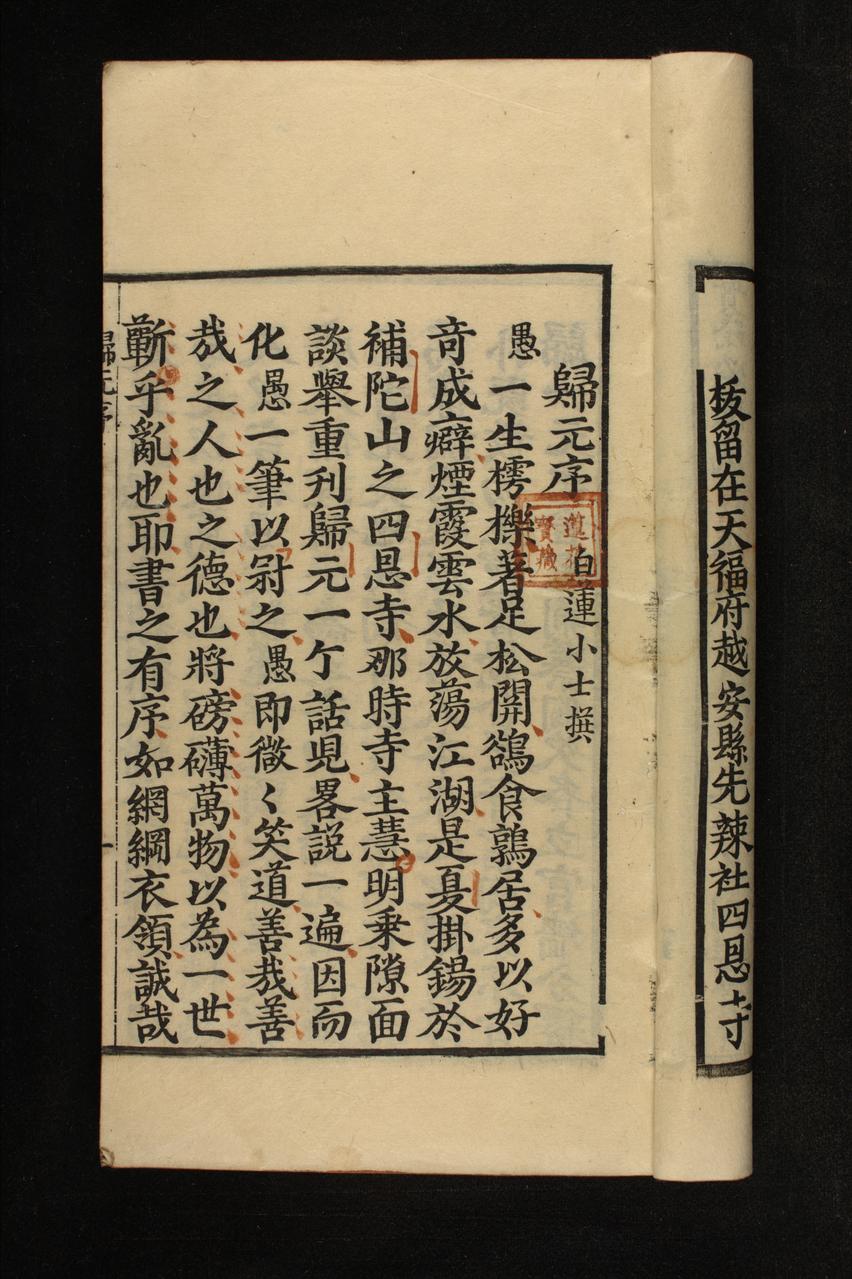 板留在天福府越安縣先辣社四恩寺
歸元序
白蓮小士撰
愚一生樗櫟著足松開鷂食鶉居多以好
竒成癖煙霞雲水放蕩江湖是夏掛錫於
補陀山之四恩寺那時寺主慧明乗隙面
談舉重刋歸元一亇話児畧説一遍因而
化愚一筆以尉之愚即微〻笑道善哉善
哉之人也之德也將磅礴萬物以為一世
蘄乎亂也耶書之有序如網綱衣領誠哉
歸元序
寳藏